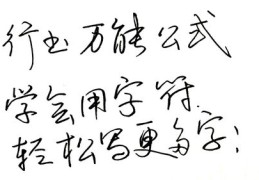 行书万能公式
学会用字符.
轻松写更多字;